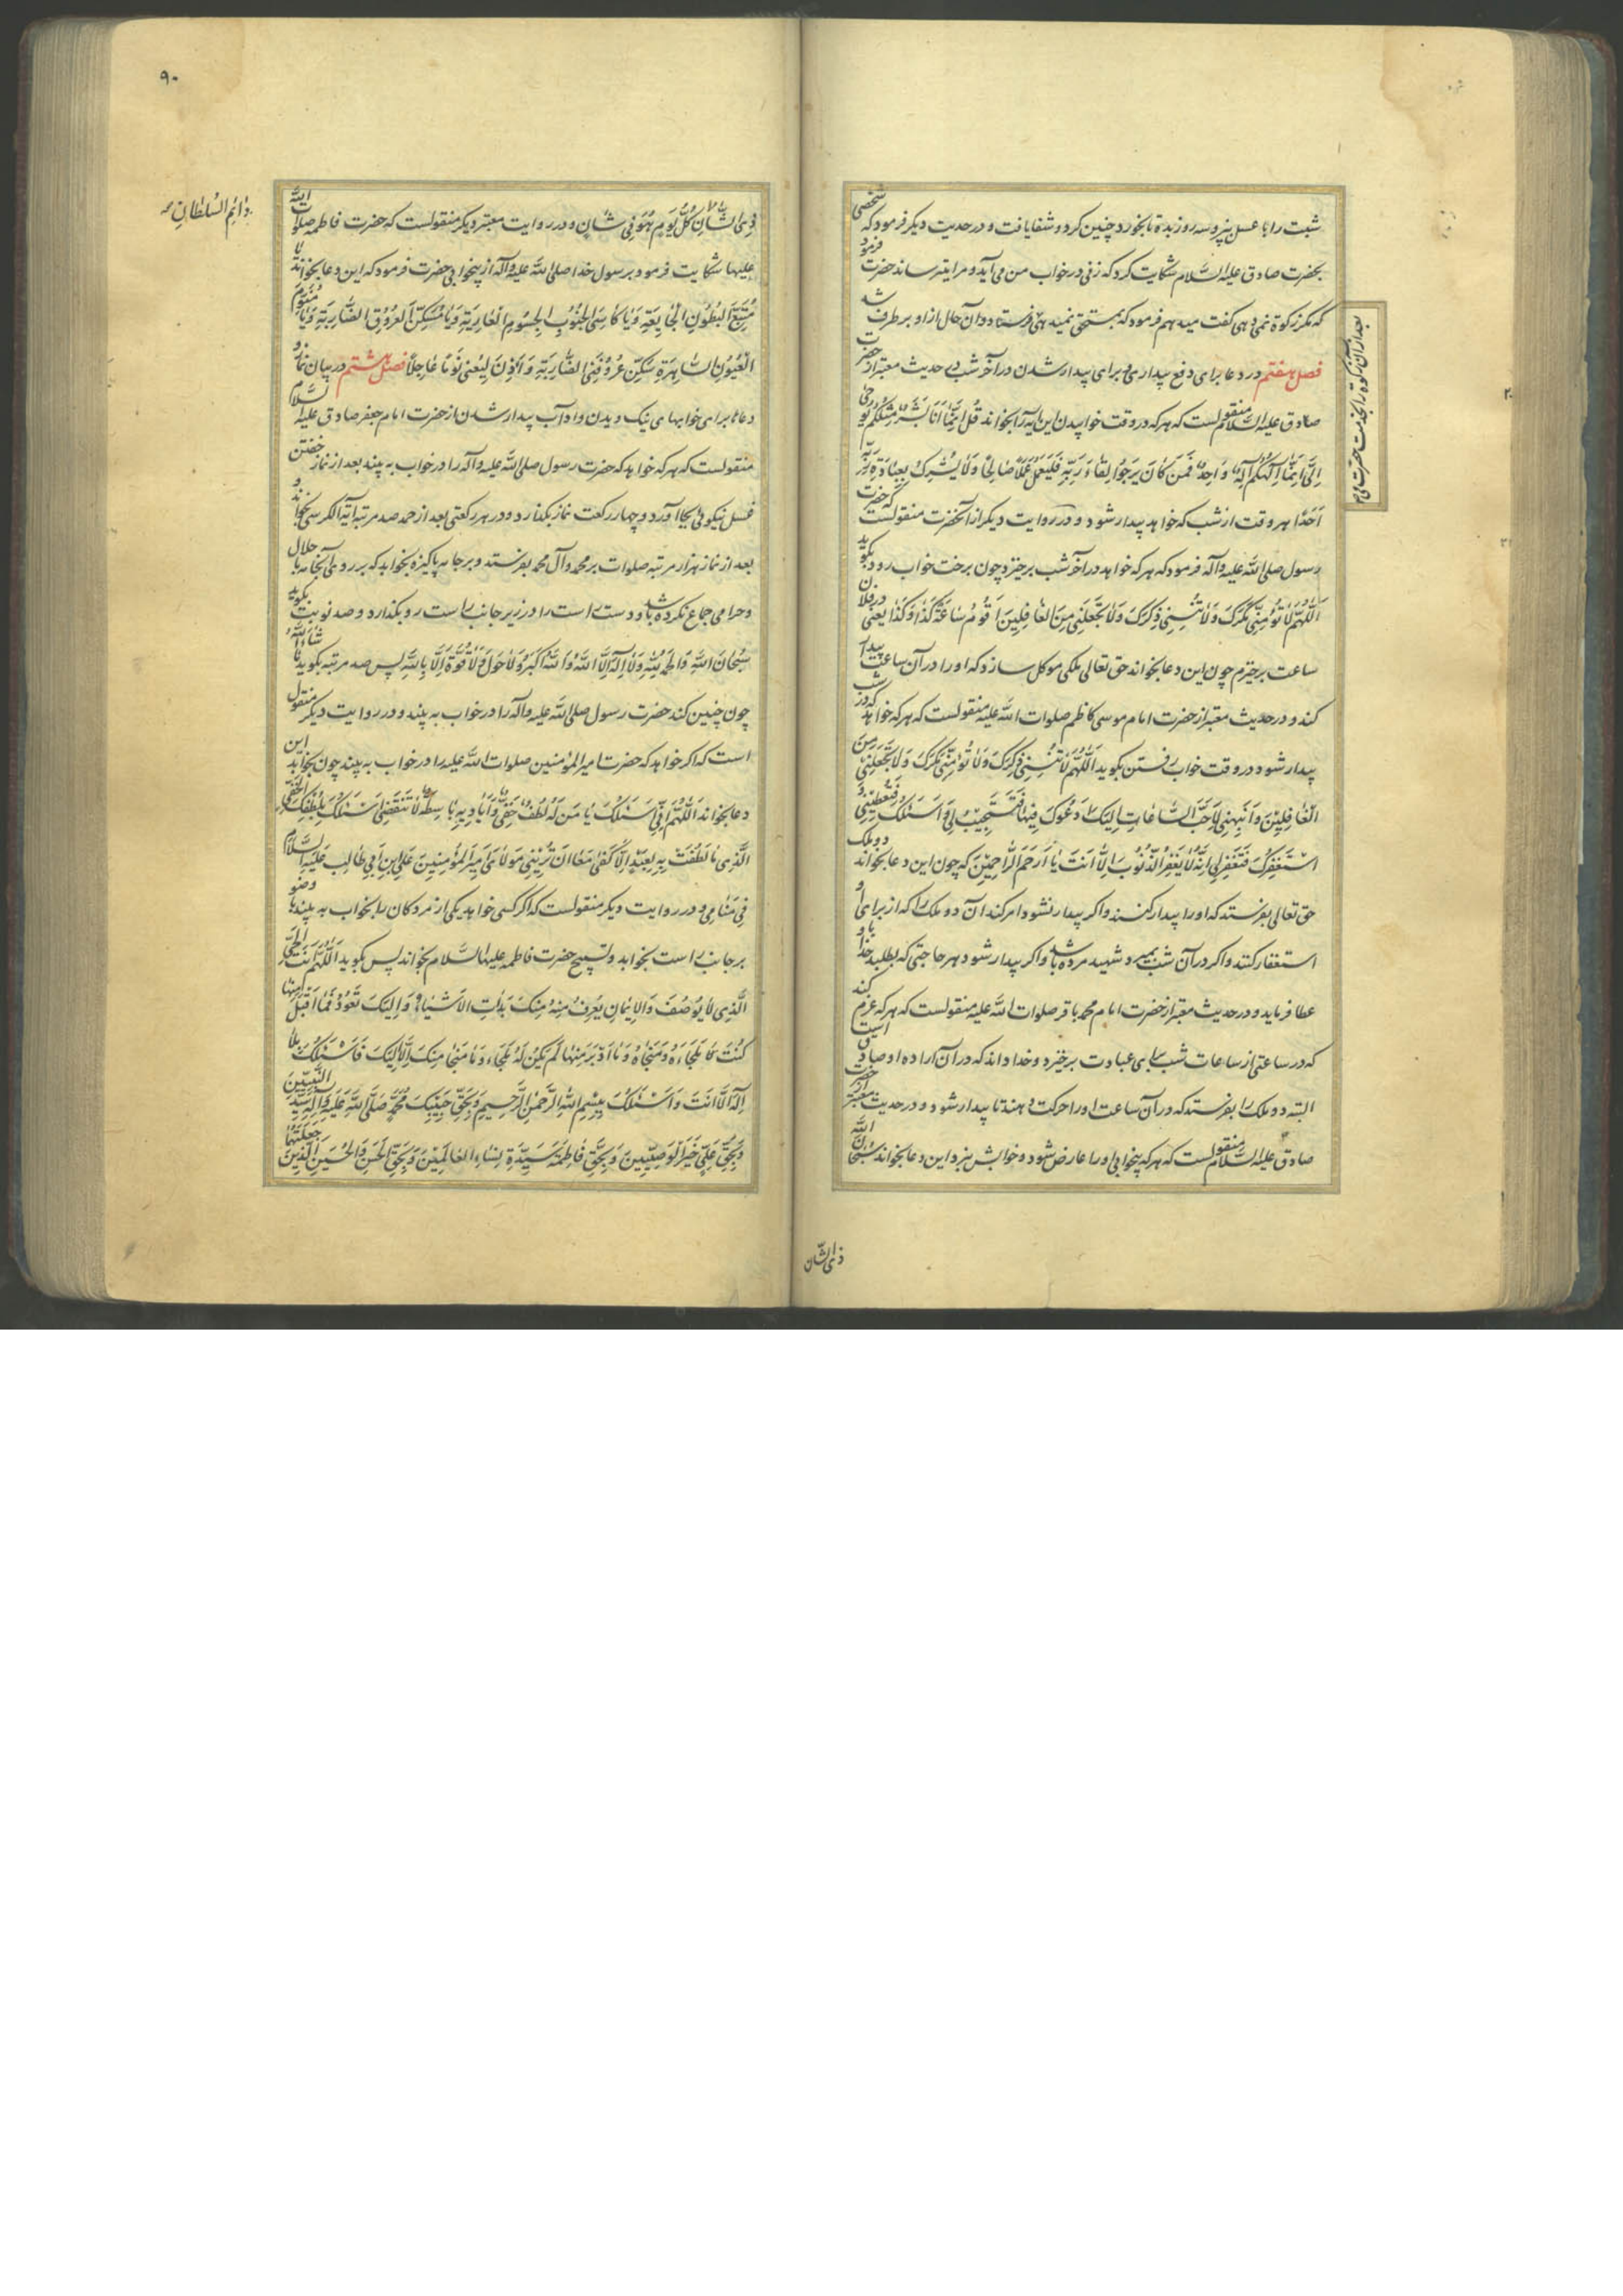 شبت را با عسل بپز و سه روز بده تا بخورد چنین کرد و شفا یافت و در حدیث دیگر فرمود که شخصی
بحضرت صادق علیه السّلام شکایت کرد که زنی در خواب من می آید و مرا میترساند حضرت فرمود
که مگر زکوة نمی دهی گفت میدهم فرمود که بمستحق نمیدهی فرستاد و آن حال از او بر طرف شد
بعد از آن زکوة را بخدمت حضرت می
فصل هفتم در دعا برای دفع بیداری و برای بیدار شدن در آخر شب در حدیث معتبر از حضرت
صادق علیه السّلام منقولست که هر که در وقت خوابیدن این آیه را بخواند قُل اِنَّما اَنَا بَشَرٌ مِثلُکُم یُوحی
اِلَیَّ اَنَّما اِلهُکُم اِلهٌ واحِدٌ فَمَن کانَ یَرجُوا لِقاءَ رَبِّهِ فَلیَعمَل عَمَلًا صالِحًا وَلا یُشرِک بِعِبادَةِ رَبِّه
اَحَدًا هر وقت از شب که خواهد بیدار شود و در روایت دیگر از آنحضرت منقولست که حضرت
رسول صلی اللّه علیه و آله فرمود که هر که خواهد در آخر شب برخیزد چون برخت خواب رود بگوید
اَللّهُمَّ لا تُؤمِنّی مَکرَکَ وَلا تُنسِنی ذِکرَکَ وَلا تَجعَلنی مِنَ الغافِلینَ اَقُومُ ساعَةَ کَذا وَکَذا یعنی در فلان
ساعت برخیزم چون این دعا بخواند حق تعالی ملکی موکل سازد که او را در آن ساعت بیدار
کند و در حدیث معتبر از حضرت امام موسی کاظم صلوات اللّه علیه منقولست که هر که خواهد که در شب
بیدار شود در وقت خواب رفتن بگوید اَللّهُمَّ لا تُنسِنی ذِکرَکَ وَلا تُؤمِنّی مَکرَکَ وَلا تَجعَلنی مِنَ
الغافِلینَ وَاَنبِهنی لِاَحَبِّ السّاعاتِ اِلَیکَ اَدعُوکَ فیها فَتَستَجیبُ لی وَاَسئَلُکَ فَتُعطینی وَ
اَستَغفِرُکَ فَتَغفِرُ لی اِنَّهُ لا یَغفِرُ الذُّنُوبَ اِلّا اَنتَ یا اَرحَمَ الرّاحِمینَ که چون این دعا بخواند دو ملک
حق تعالی بفرستد که او را بیدار کنند و اگر بیدار نشود امر کند آن دو ملک را که از برای او
استغفار کنند و اگر در آن شب بمیرد شهید مرده باشد و اگر بیدار شود هر حاجتی که بطلبد خدا باو
عطا فرماید و در حدیث معتبر از حضرت امام محمد باقر صلوات اللّه علیه منقولست که هر که عزم کند
که در ساعتی از ساعات شب برای عبادت برخیزد و خدا داند که در آن اراده او صادق است
البته دو ملک را بفرستد که در آن ساعت او را حرکت دهند تا بیدار شود و در حدیث معتبر از حضرت
صادق علیه السّلام منقولست که هر که بیخوابی او را عارض شود و خوابش نبرد این دعا بخواند سُبحانَ اللّه
ذی الشّان
۹۰
دائِم السُّلطانِ
ذِی الشّانِ کُلَّ یَومٍ هُوَ فی شانٍ و در روایت معتبر دیگر منقولست که حضرت فاطمه صلوات اللّه
علیها شکایت فرمود برسول خدا صلی اللّه علیه و آله از بیخوابی حضرت فرمود که این دعا بخواند یا
مُشبِعَ البُطُونِ الجائِعَةِ وَیا کاسِیَ الجُنُوبِ الجُسُومِ العارِیَةِ وَیا مُسَکِّنَ العُرُوقِ الضّارِبَةِ وَیا مُنَوِّمَ
العُیُونِ السّاهِرَةِ سَکِّن عُرُوقِیَ الضّارِبَةَ وَاَذِن لِعَینی نَومًا عاجِلًا فصل هشتم در بیان نماز و
دعاها برای خوابهای نیک دیدن و آداب بیدار شدن از حضرت امام جعفر صادق علیه السّلام
منقولست که هر که خواهد که حضرت رسول صلی اللّه علیه و آله را در خواب به بیند بعد از نماز خفتن
غسل نیکوئی بجا آورد و چهار رکعت نماز بگذارد و در هر رکعتی بعد از حمد صد مرتبه آیة الکرسی بخواند و
بعد از نماز هزار مرتبه صلوات بر محمد و آل محمد بفرستد و بر جامه پاکیزه بخوابد که بر روی آن جامه با حلال
و حرامی جماع نکرده باشد و دست راست را در زیر جانب راست رو بگذارد و صد نوبت بگوید
سُبحانَ اللّهِ وَالحَمدُ لِلّهِ وَلا اِلهَ اِلَّا اللّهُ وَاللّهُ اَکبَرُ وَلا حَولَ وَلا قُوَّةَ اِلّا بِاللّهِ پس صد مرتبه بگوید ما شاءَ اللّهُ
چون چنین کند حضرت رسول صلی اللّه علیه و آله را در خواب به بیند و در روایت دیگر منقول
است که اگر خواهد که حضرت امیر المؤمنین صلوات اللّه علیه را در خواب به بیند چون بخوابد این
دعا بخواند اَللّهُمَّ اِنّی اَسئَلُکَ یا مَن لَهُ لُطفٌ خَفِیٌّ وَاَیادیهِ باسِطَةٌ لا تَنقَضی اَسئَلُکَ بِلُطفِکَ الخَفِیِّ
الَّذی ما لَطُفتَ بِهِ لِعَبدٍ اِلّا کُفِیَ اَن تُرِیَنی مَولایَ اَمیرَ المُؤمِنینَ عَلِیَّ ابنَ اَبی طالِبٍ عَلَیهِ السَّلامُ
فی مَنامی و در روایت دیگر منقولست که اگر کسی خواهد یکی از مردگان را بخواب به بیند با وضو
بر جانب راست بخوابد و تسبیح حضرت فاطمه علیها السّلام بخواند پس بگوید اَللّهُمَّ اَنتَ الحَیُّ
الَّذی لا یُوصَفُ وَالایمانُ یُعرَفُ مِنهُ مِنکَ بَدَاَتِ الاَشیاءُ وَاِلَیکَ تَعُودُ فَما اَقبَلَ مِنها
کُنتَ مَلجَاَهُ وَمَنجاهُ وَما اَدبَرَ مِنها لَم یَکُن لَهُ مَلجَاءٌ وَلا مَنجا مِنکَ اِلّا اِلَیکَ فَاَسئَلُکَ بِلا
اِلهَ اِلّا اَنتَ وَاَسئَلُکَ بِبِسمِ اللّهِ الرَّحمنِ الرَّحیمِ وَبِحَقِّ حَبیبِکَ مُحَمَّدٍ صَلَّی اللّهُ عَلَیهِ وَآلِهِ سَیِّدِ النَّبِیّینَ
وَبِحَقِّ عَلِیٍّ خَیرِ الوَصِیّینَ وَبِحَقِّ فاطِمَةَ سَیِّدَةِ نِساءِ العالَمینَ وَبِحَقِّ الحَسَنِ وَالحُسَینِ الَّذینَ جَعَلتَهُما